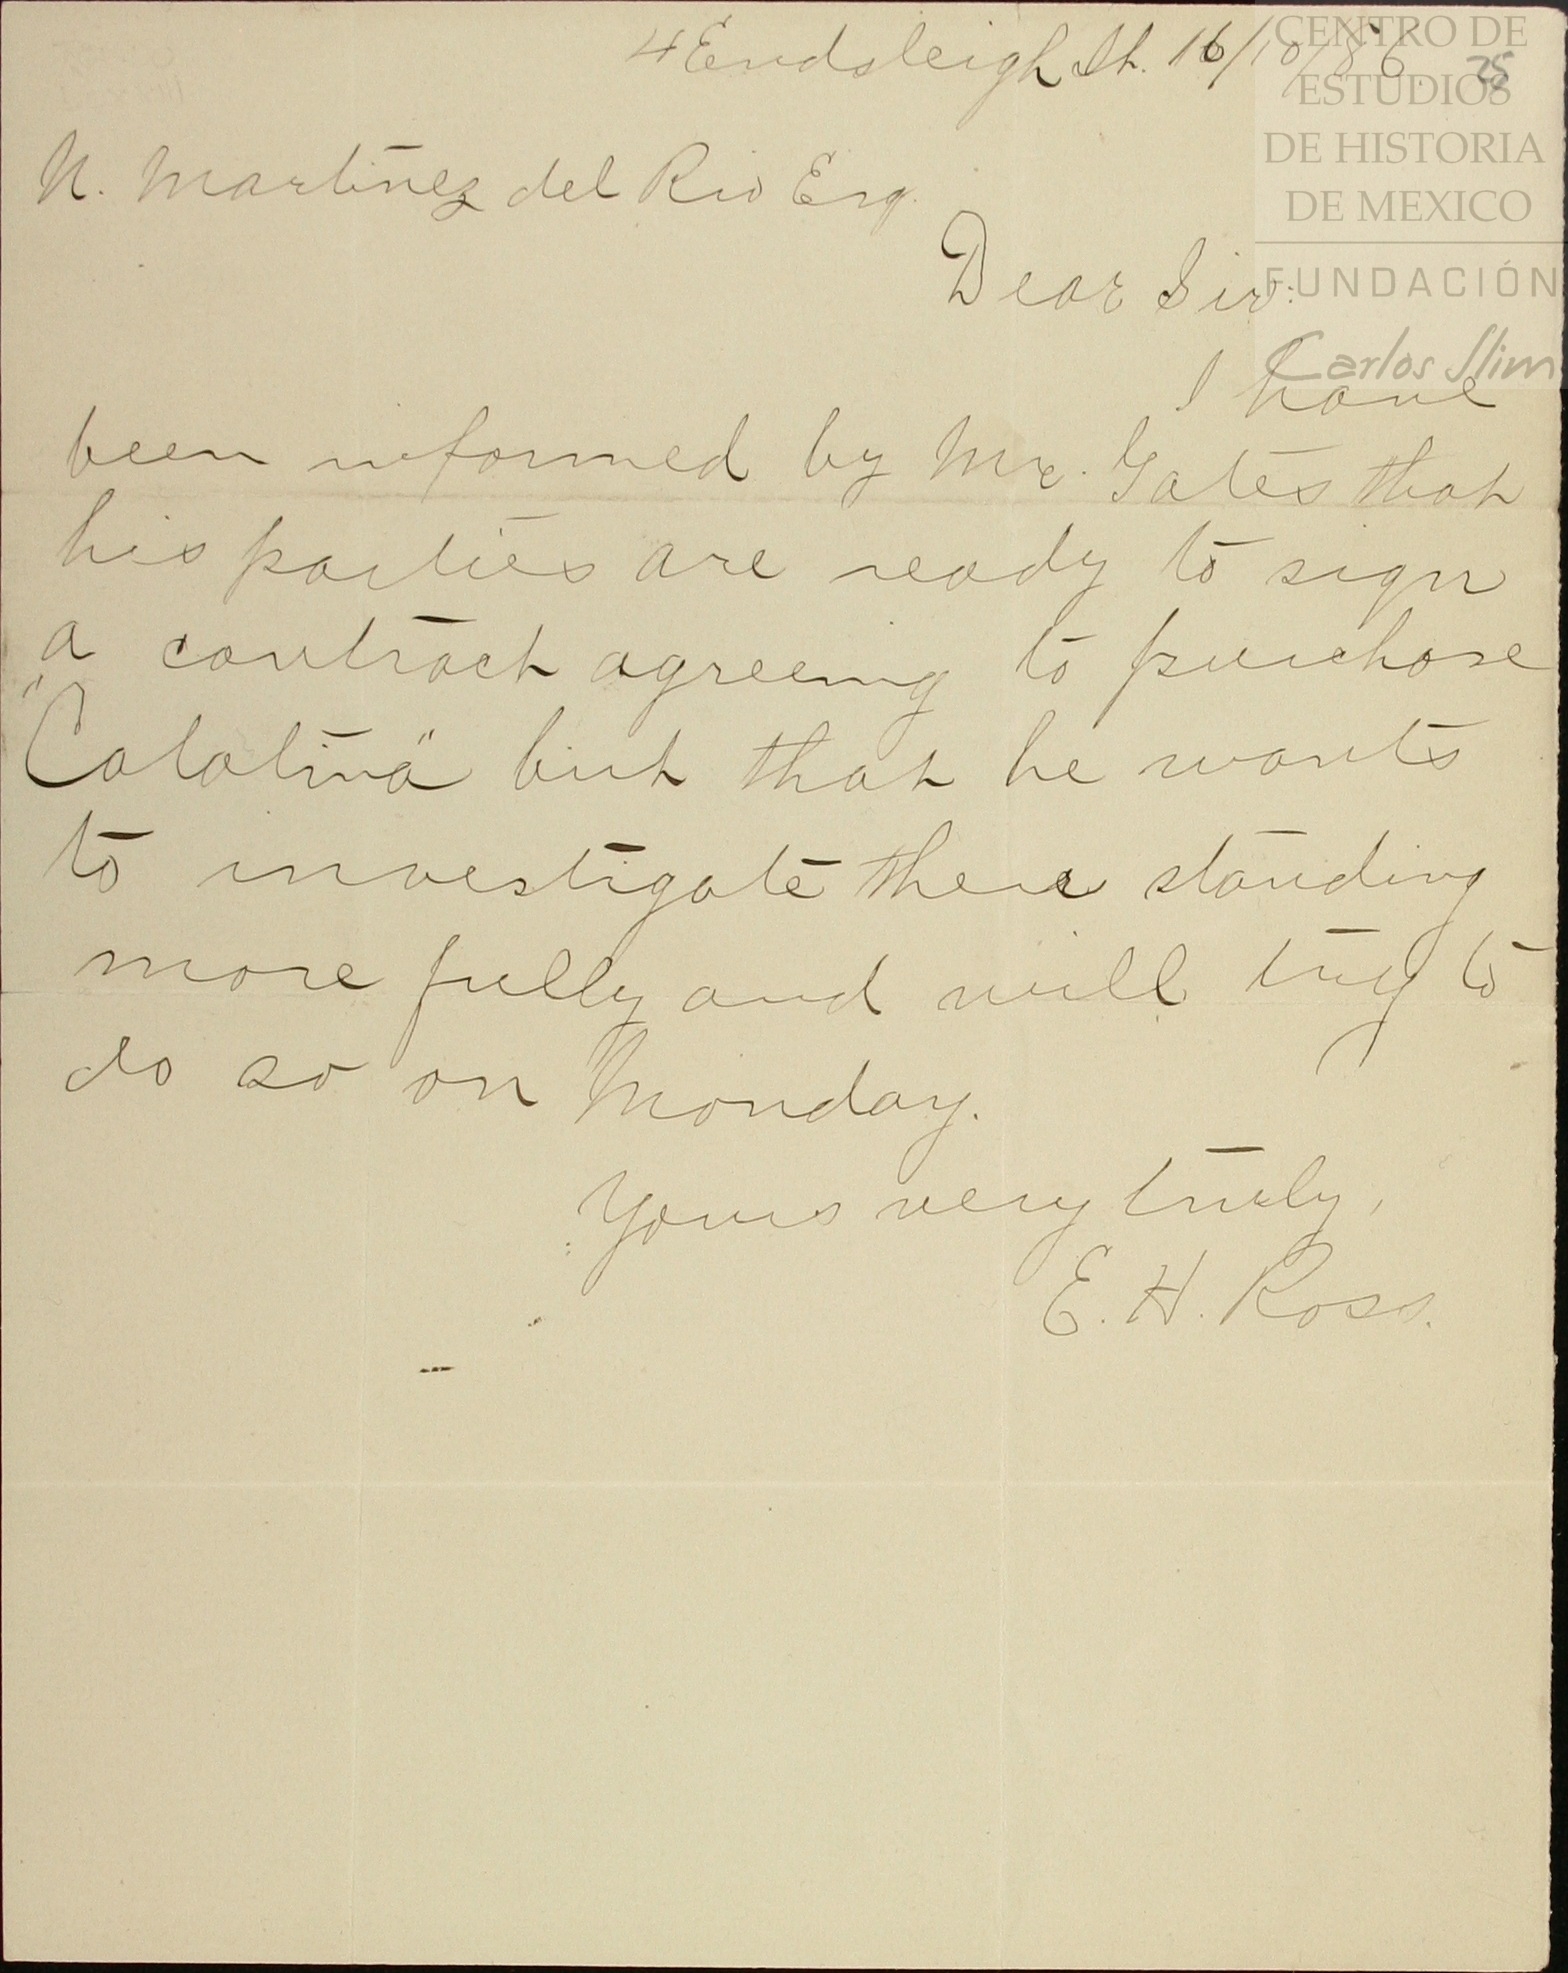 4 Endsleigh St. 16/10/86.
25
N. Martinez del Rio Esq.
Dear Sir:
I have
been informed by Mr. Gates that
his parties are ready to sign
a contract agreeing to purchase
"Catalina" but that he wants
to investigate there standing
more fully and will try to
do so on Monday.
Yours very truly,
E. H. Ross.
CENTRO DE
ESTUDIOS
DE HISTORIA
DE MEXICO
FUNDACIÓN
Carlos Slim